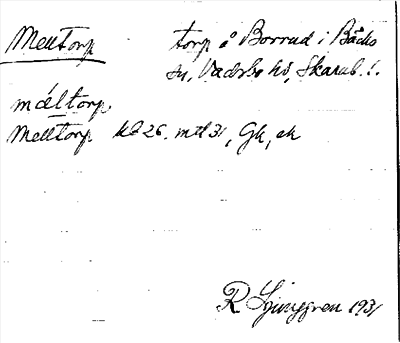 Melltorp torp å Borrud i Bäcks
sn, Vadsbo hd, Skarab. l.
mǽltorp.
Melltorp kb 26. mtl 31, Gk, ek
R Ljunggren 1931